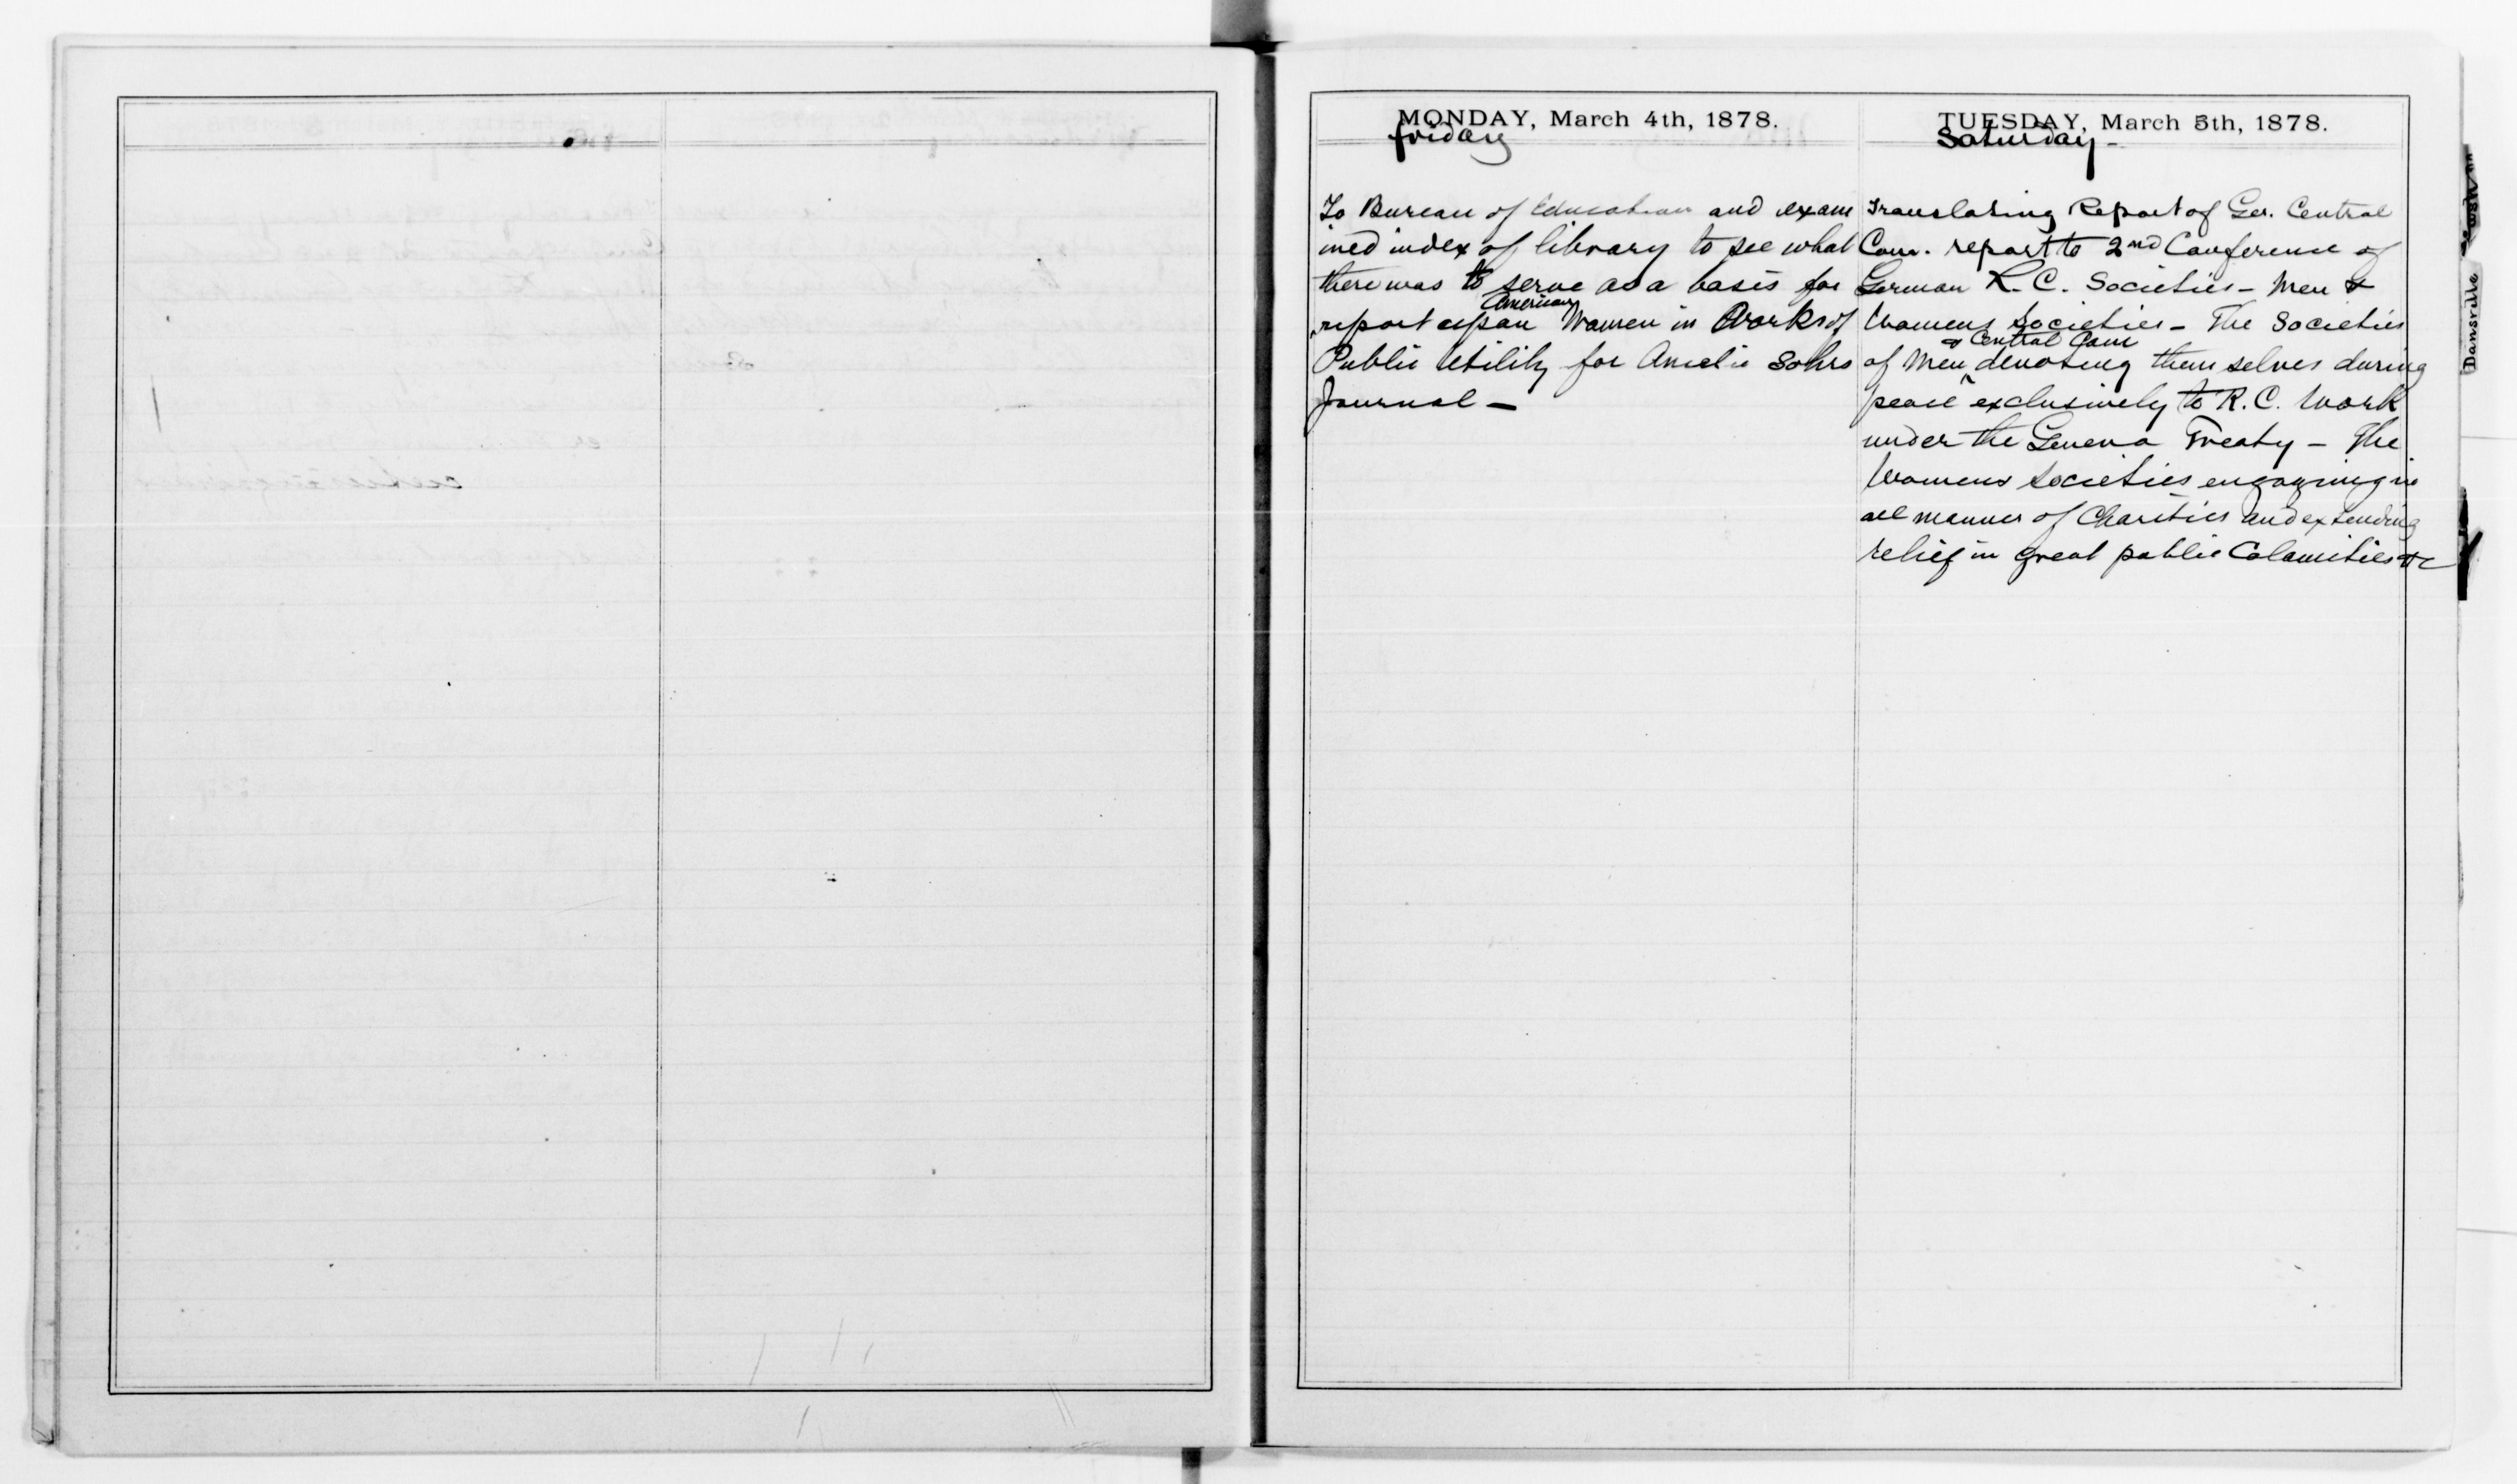 MONDAY, March 4th, 1878.
friday
To Bureau of Education and exam
ined index of library to see what
there was to serve as a basis for
American
report upon Women in Works of
Public Utility for Amelie Sohrs
Journal —
TUESDAY, March 5th, 1878.
Saturday —
Translating Report of Ger. Central
Com. report to 2nd Conference of
German R. C. Societies — Men &
Womens Societies — The Societies
& Central Com
of Men devoting themselves during
peace exclusively to R. C. Work
under the Geneva Treaty — The
Womens Societies engaging in
all manner of Charities and extending
relief in great public Calamities &c
Dansville